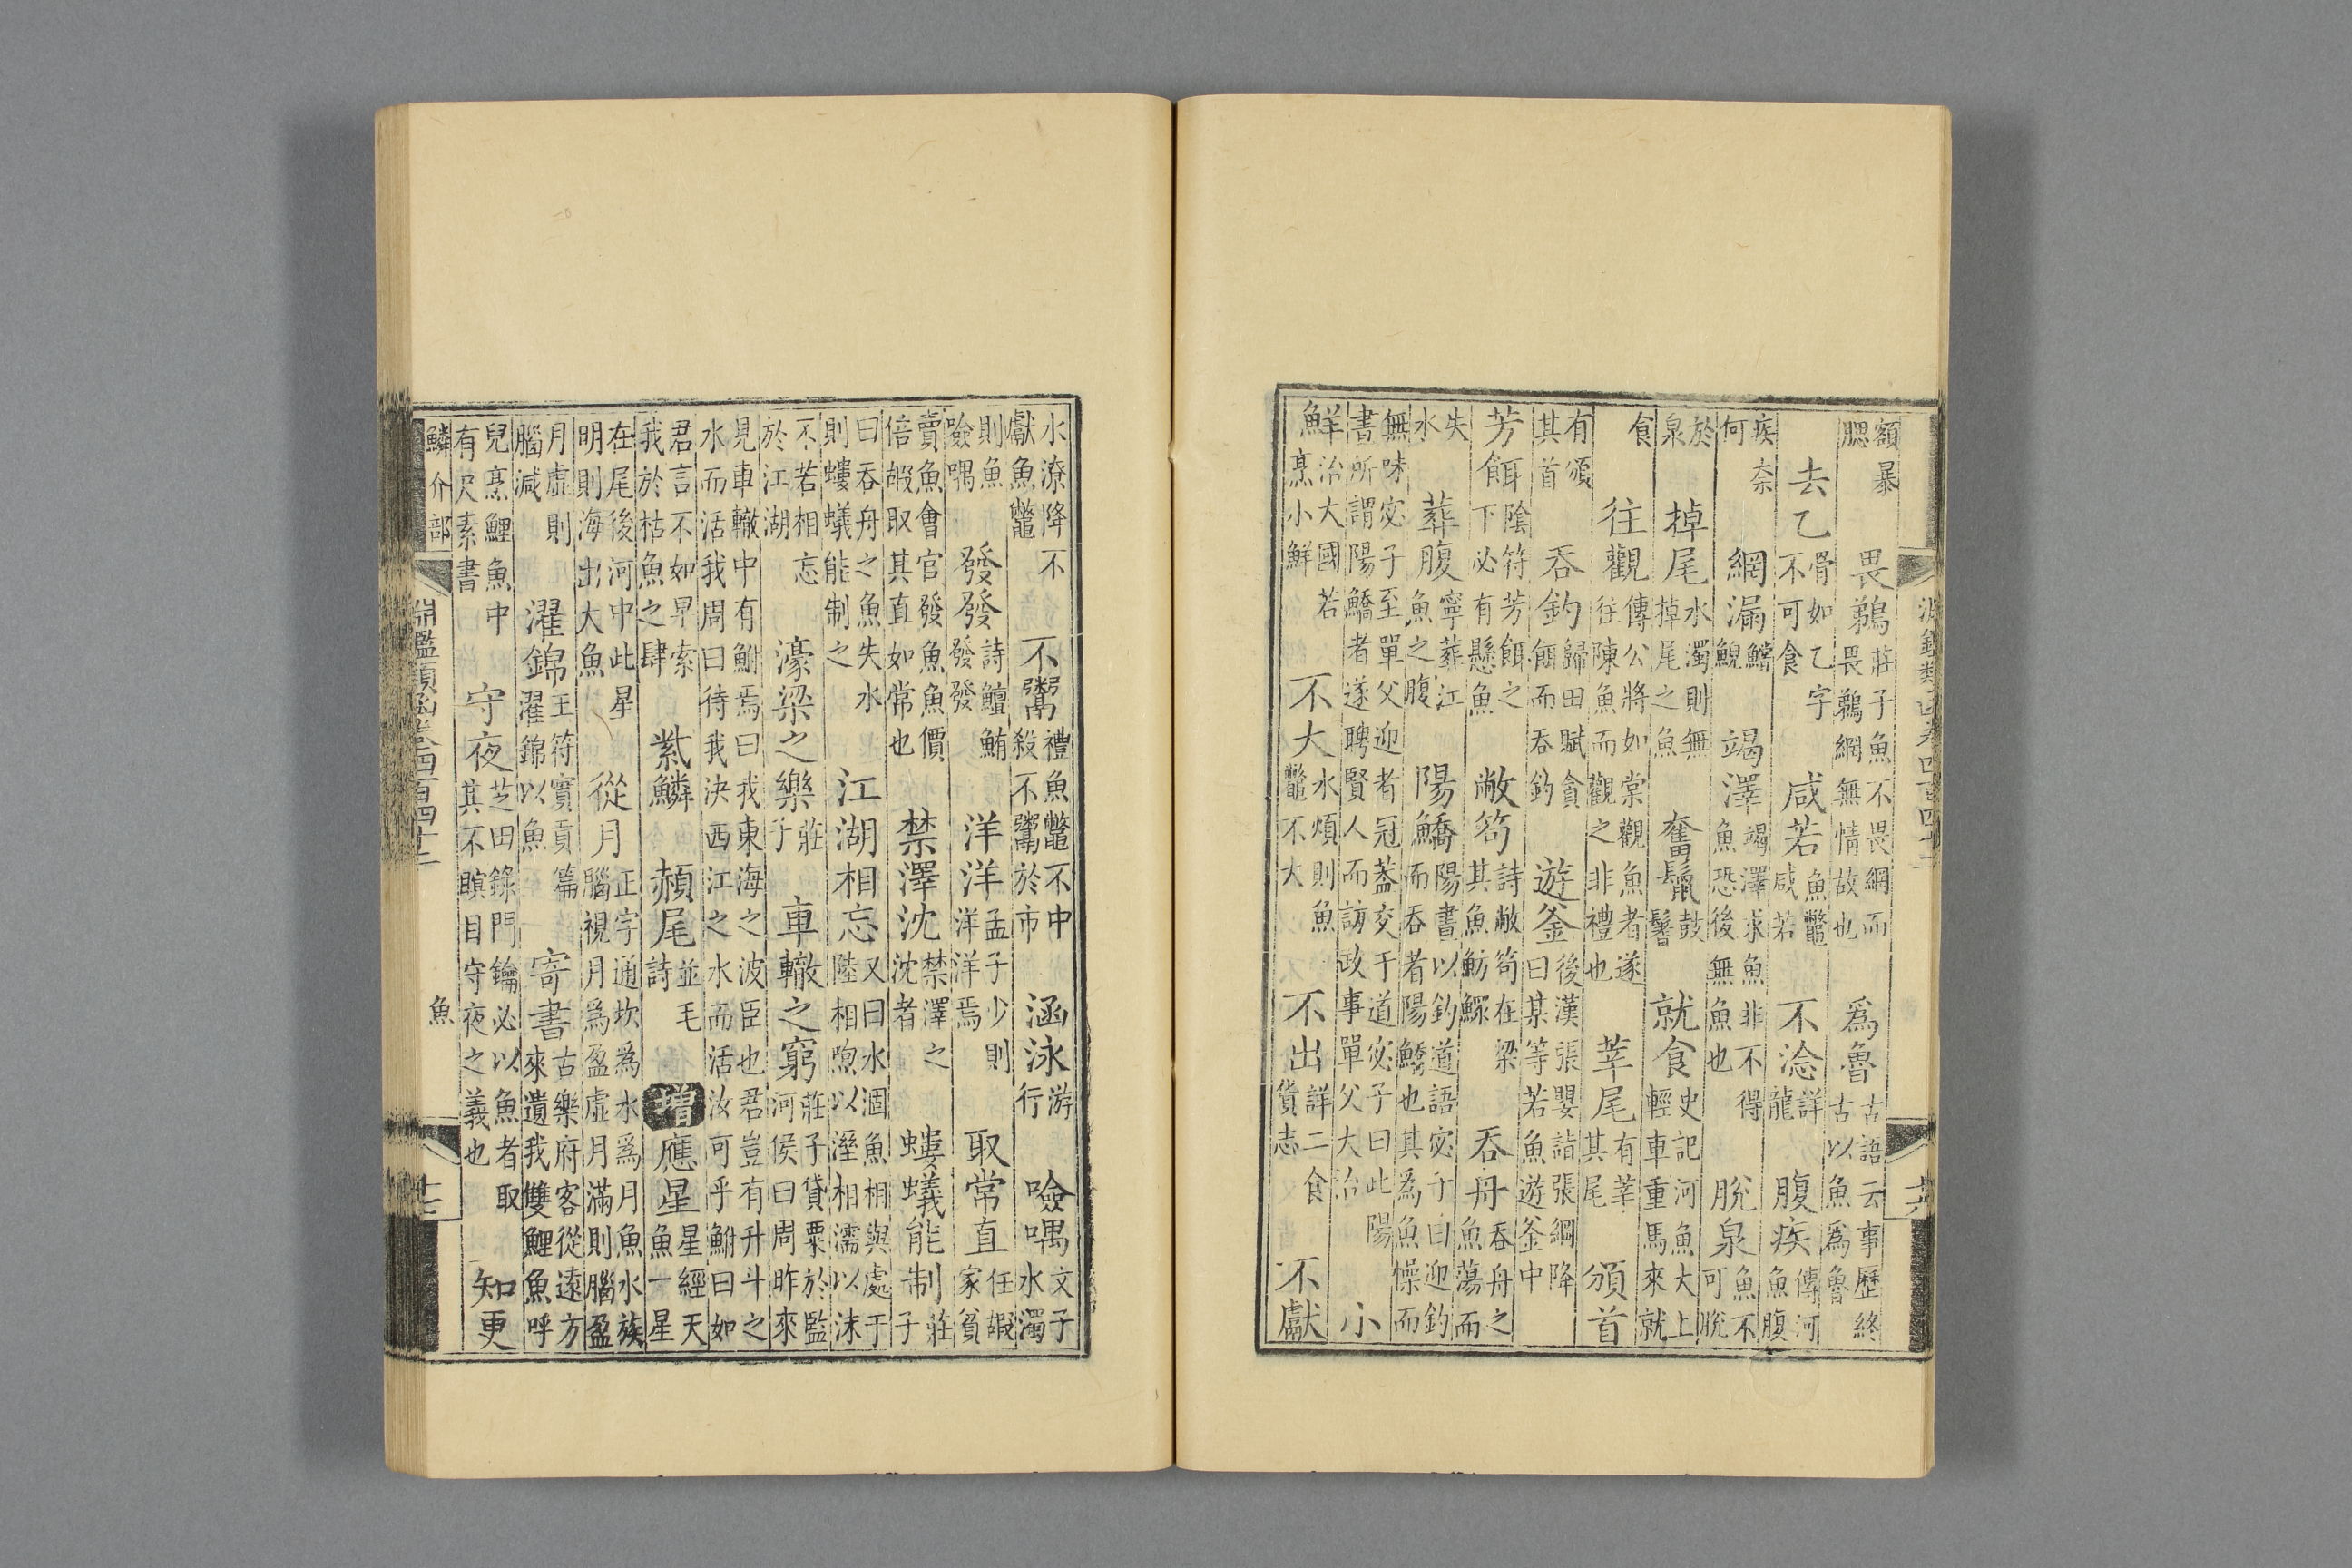 淵鑑類函卷四百四十二 十六
額暴腮 畏鵜莊子魚不畏網而畏鵜網無情故也 為魯古語云事歷終古以魚為魯
去乙骨如乙字不可食 咸若魚鼈咸若 不淰詳龍 腹疾傳河魚腹
疾奈何 網漏鰭鯢 竭澤竭澤求魚非不得魚恐後無魚也 脫泉魚不可脫
於泉 掉尾水濁則無掉尾之魚 奮鬛鼓鬐 就食史記河魚大上輕車重馬來就
食 往觀傳公將如棠觀魚者遂往陳魚而觀之非禮也 莘尾有莘其尾 頒首
有頒其首 吞釣歸田賦貪餌而吞釣 遊釜後漢張嬰詣張綱降曰某等若魚遊釜中
芳餌陰符芳餌之下必有懸魚 敝笱詩敝笱在梁其魚魴鰥 吞舟吞舟之魚蕩而
失水 葬腹寧葬江魚之腹 陽鱎陽書以釣道語宓子曰迎釣而吞者陽鱎也其為魚懆而
無味宓子至單父迎者冠葢交于道宓子曰此陽書所謂陽鱎者遂聘賢人而訪政事單父大治 小
鮮治大國若烹小鮮 不大水煩則魚鼈不大 不出詳二食貨志 不獻
水潦降不獻魚鼈 不鬻禮魚鼈不中殺不鬻於市 涵泳游行 噞喁文子水濁
則魚噞喁 發發詩鱣鮪發發 洋洋孟子少則洋洋焉 取常直任嘏家貧
賣魚會官發魚魚價倍嘏取其直如常也 禁澤沈禁澤之沈者 螻蟻能制莊子
曰吞舟之魚失水則螻蟻能制之 江湖相忘又曰水涸魚相與處于陸相喣以溼相濡以沫
不若相忘於江湖 濠梁之樂莊子 車轍之窮莊子貸粟於監河侯曰周昨來
見車轍中有鮒焉曰我東海之波臣也君豈有升斗之水而活我周曰待我決西江之水而活汝可乎鮒曰如
君言不如早索我於枯魚之肆 紫鱗 赬尾並毛詩 增 應星星經天魚一星
在尾後河中此星明則海出大魚 從月正字通坎為水為月魚水族腦視月為盈虛月滿則腦盈
月虛則腦減 濯錦王符實貢篇濯錦以魚 寄書古樂府客從遠方來遺我雙鯉魚呼
兒烹鯉魚中有尺素書 守夜芝田錄門鑰必以魚者取其不瞑目守夜之義也 知更
鱗介部 淵鑑類函卷四百四十二 魚 十七